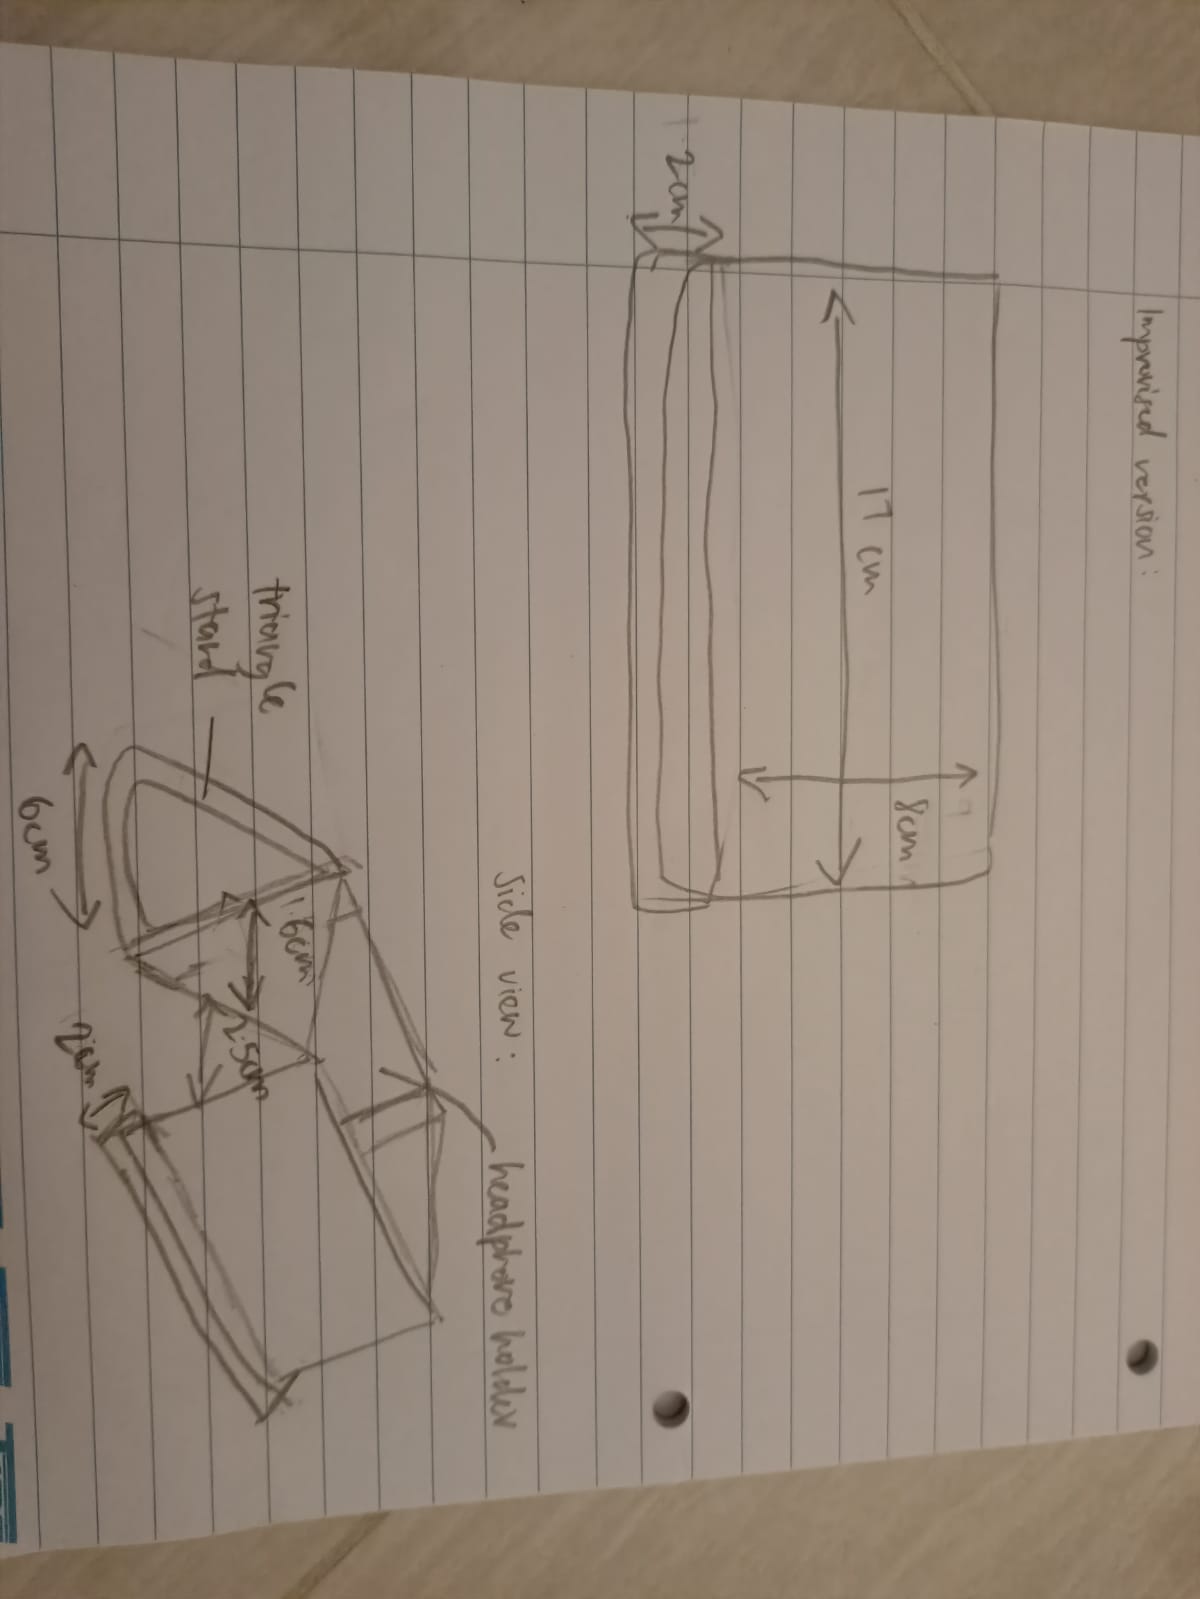 Improvised version:
17 cm
8cm
2cm
Side view:
headphone holder
triangle
stand
1.6cm
2.5cm
6cm
2cm